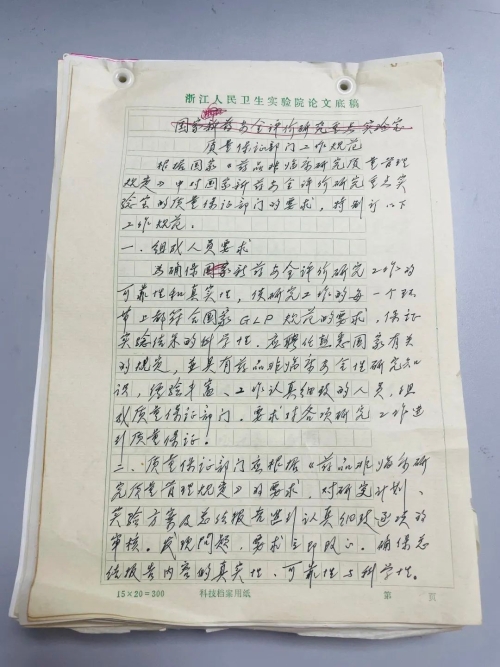 浙江人民卫生实验院论文底稿
国家新药安全评价研究重点实验室
质量保证部门工作规范
根据国家《药品非临床研究质量管理
规定》中对国家新药安全评价研究重点实
验室的质量保证部门的要求，特制订以下
工作规范。
一、组成人员要求
为确保国家新药安全评价研究工作的
可靠性和真实性，使研究工作的每一个环
节上都符合国家GLP规范的要求，保证
实验结果的科学性。应聘任熟悉国家有关
的规定，并具有药品非临床安全性研究知
识，经验丰富、工作认真细致的人员，组
成质量保证部门。要求对各项研究工作进
行质量保证。
二、质量保证部门应根据《药品非临床研
究质量管理规定》的要求，对研究计划、
实验方案及总结报告进行认真细致逐项的
审核。发现问题，要求立即改正。确保总
结报告内容的真实性、可靠性与科学性。
15×20=300 科技档案用纸 第 页